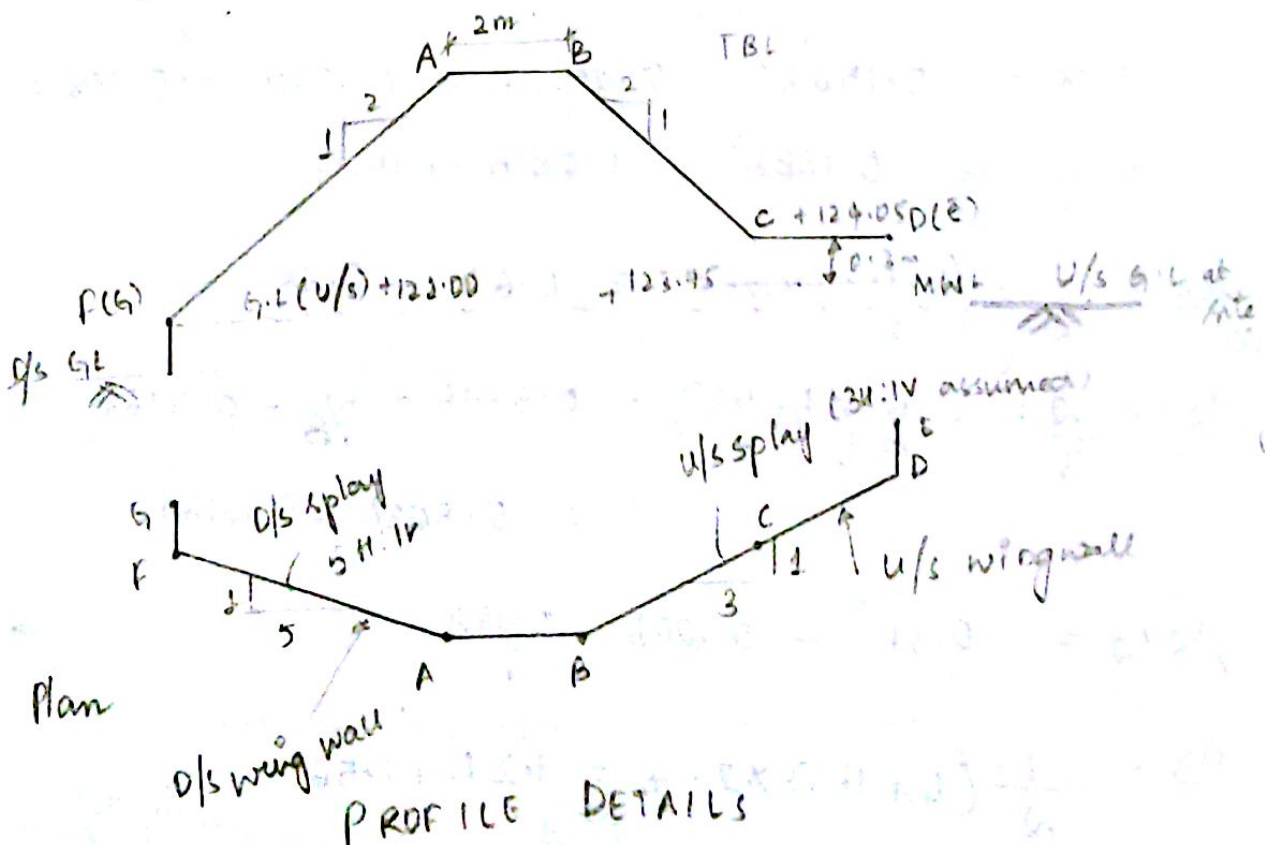 2m
A B TBL
2
1
2
1
C +124.05 D(E)
0.3m
F(G) G.L (U/S) +122.00 +123.75 MWL U/S G.L at site
D/s GL
U/s splay (3H:1V assumed)
E
D
G D/s splay
5H:1V
F
C
1 U/s wingwall
3
1
5
A B
Plan
D/s wing wall
PROFILE DETAILS